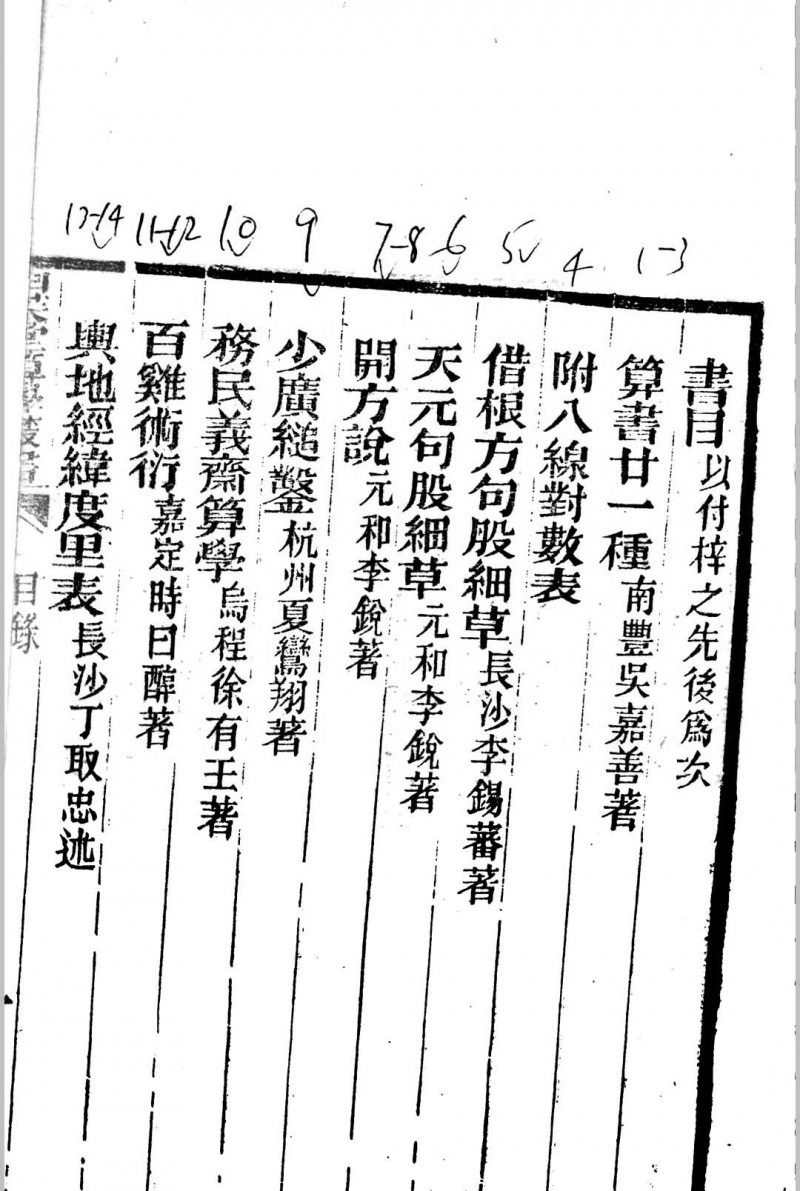 1-3
4
5
6
7-8
9
10
11-12
13-14
書目以付梓之先後爲次
算書廿一種南豐吳嘉善著
附八線對數表
借根方句股細草長沙李錫蕃著
天元句股細草元和李銳著
開方說元和李銳著
少廣縋鑿杭州夏鸞翔著
務民義齋算學烏程徐有壬著
百雞術衍嘉定時曰醇著
輿地經緯度里表長沙丁取忠述
目錄